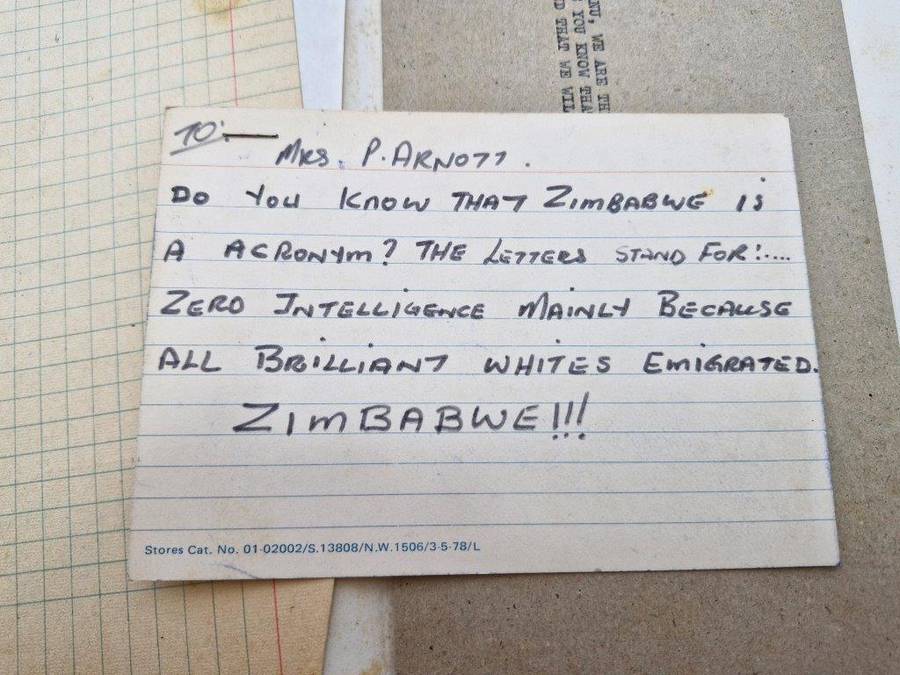 TO:—
Mrs. P. ARNOTT.
DO YOU KNOW THAT ZIMBABWE IS
A ACRONYM? THE LETTERS STAND FOR:....
ZERO INTELLIGENCE MAINLY BECAUSE
ALL BRILLIANT WHITES EMIGRATED.
ZIMBABWE!!!
Stores Cat. No. 01-02002/S.13808/N.W.1506/3-5-78/L
WE ARE
YOU KNOW
THAT WE